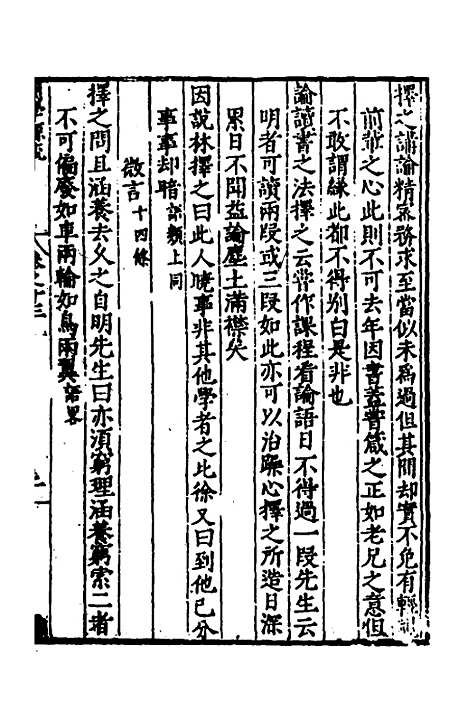 擇之講論精密務求至當似未爲過但其間却實不免有輕
前輩之心此則不可去年因書蓋嘗箴之正如老兄之意但
不敢謂緣此都不得別白是非也
論讀書之法擇之云嘗作課程看論語日不得過一段先生云
明者可讀兩段或三段如此亦可以治躁心擇之所造日深
累日不聞益論塵土滿襟矣
因說林擇之曰此人曉事非其他學者之比徐又曰到他已分
事事却暗語類上同
微言十四條
擇之問且涵養去久之自明先生曰亦須窮理涵養窮索二者
不可偏廢如車兩輪如鳥兩翼語畧